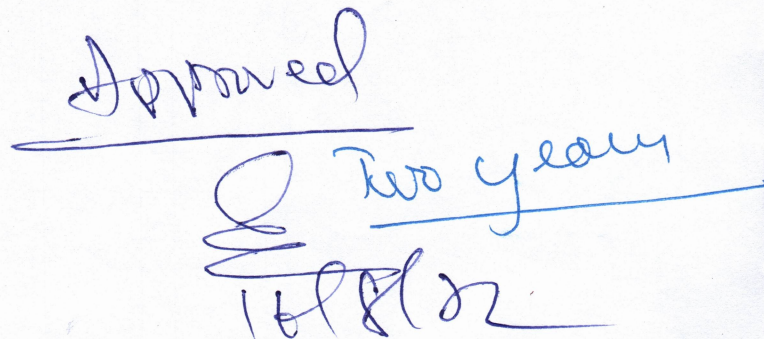 Approved
Two years
16/8/22